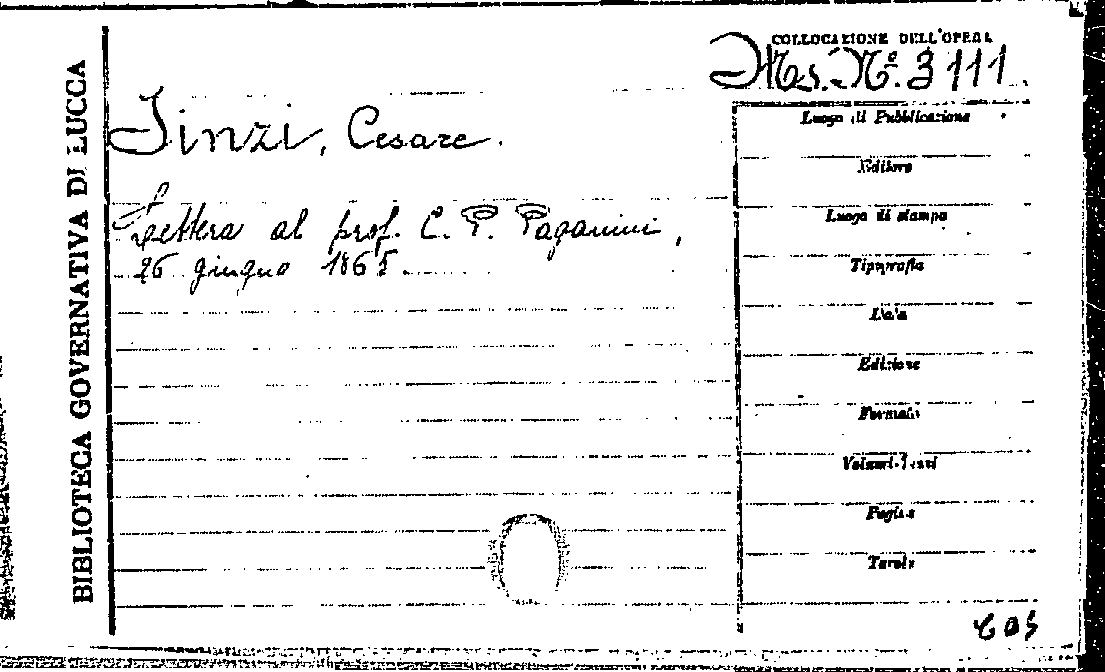 BIBLIOTECA GOVERNATIVA DI LUCCA
COLLOCAZIONE DELL'OPERA
Ms. Nº. 3111.
Tinzi, Cesare.
Lettera al prof. C. P. Paganini,
26 giugno 1865.
Luogo di Pubblicazione
Editore
Luogo di stampa
Tipografia
Data
Edizione
Formato
Volumi-Tomi
Pagine
Tavole